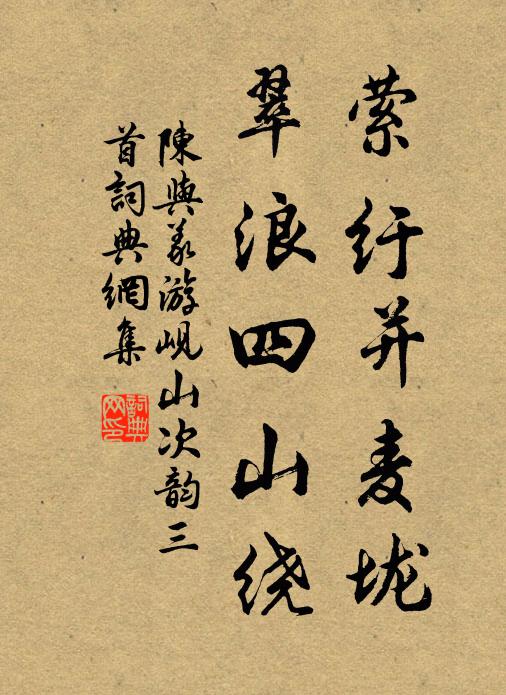 萦纡并麦垅
翠浪四山绕
陳與義游岘山次韵三
首詞典網集
詞典網印